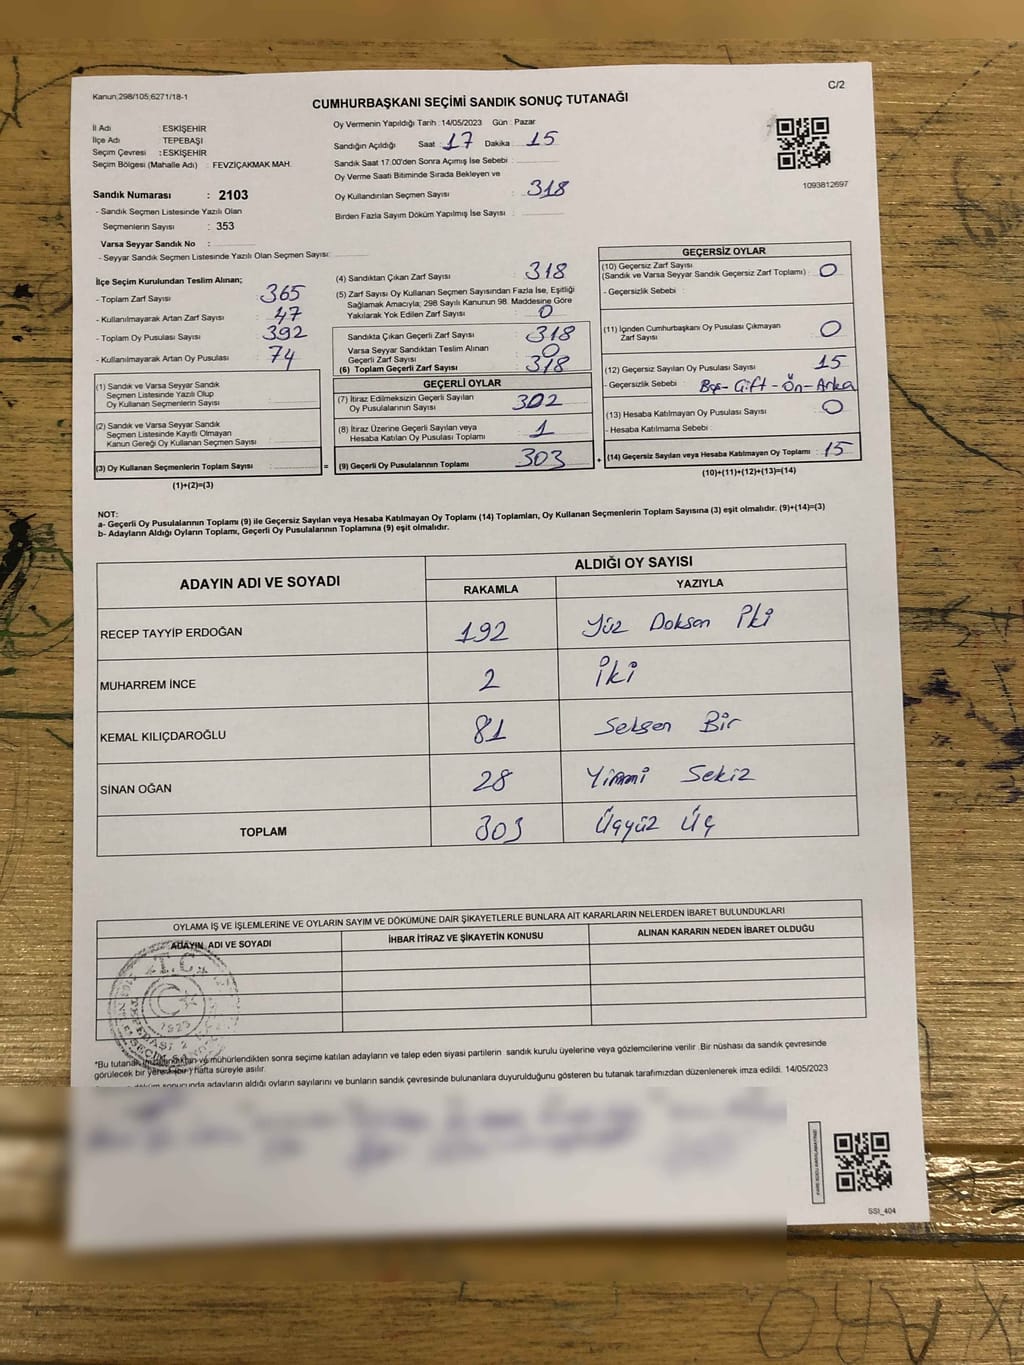 Kanun;298/105;6271/18-1
C/2
CUMHURBAŞKANI SEÇİMİ SANDIK SONUÇ TUTANAĞI
İl Adı : ESKİŞEHİR
İlçe Adı TEPEBAŞI
Seçim Çevresi : ESKİŞEHİR
Seçim Bölgesi (Mahalle Adı) : FEVZİÇAKMAK MAH.
Sandık Numarası : 2103
- Sandık Seçmen Listesinde Yazılı Olan
Seçmenlerin Sayısı : 353
Varsa Seyyar Sandık No :
- Seyyar Sandık Seçmen Listesinde Yazılı Olan Seçmen Sayısı:
Oy Vermenin Yapıldığı Tarih : 14/05/2023 Gün : Pazar
Sandığın Açıldığı Saat : 17 Dakika 15
Sandık Saat 17:00'den Sonra Açımış İse Sebebi :
Oy Verme Saati Bitiminde Sırada Bekleyen ve
Oy Kullandırılan Seçmen Sayısı : 318
Birden Fazla Sayım Döküm Yapılmış İse Sayısı :
1093812697
İlçe Seçim Kurulundan Teslim Alınan;
- Toplam Zarf Sayısı : 365
- Kullanılmayarak Artan Zarf Sayısı : 47
- Toplam Oy Pusulası Sayısı : 392
- Kullanılmayarak Artan Oy Pusulası : 74
(1) Sandık ve Varsa Seyyar Sandık
Seçmen Listesinde Yazılı Olup
Oy Kullanan Seçmenlerin Sayısı :
(2) Sandık ve Varsa Seyyar Sandık
Seçmen Listesinde Kayıtlı Olmayan
Kanun Gereği Oy Kullanan Seçmen Sayısı :
(3) Oy Kullanan Seçmenlerin Toplam Sayısı :
=
(1)+(2)=(3)
(4) Sandıktan Çıkan Zarf Sayısı : 318
(5) Zarf Sayısı Oy Kullanan Seçmen Sayısından Fazla İse, Eşitliği
Sağlamak Amacıyla; 298 Sayılı Kanunun 98. Maddesine Göre
Yakılarak Yok Edilen Zarf Sayısı : 0
Sandıkta Çıkan Geçerli Zarf Sayısı : 318
Varsa Seyyar Sandıktan Teslim Alınan
Geçerli Zarf Sayısı : 0
(6) Toplam Geçerli Zarf Sayısı : 318
GEÇERLİ OYLAR
(7) İtiraz Edilmeksizin Geçerli Sayılan
Oy Pusulalarının Sayısı : 302
(8) İtiraz Üzerine Geçerli Sayılan veya
Hesaba Katılan Oy Pusulası Toplamı : 1
(9) Geçerli Oy Pusulalarının Toplamı : 303
+
GEÇERSİZ OYLAR
(10) Geçersiz Zarf Sayısı
(Sandık ve Varsa Seyyar Sandık Geçersiz Zarf Toplamı) : 0
- Geçersizlik Sebebi :
(11) İçinden Cumhurbaşkanı Oy Pusulası Çıkmayan
Zarf Sayısı : 0
(12) Geçersiz Sayılan Oy Pusulası Sayısı : 15
- Geçersizlik Sebebi : Boş - Çift - Ön - Arka
(13) Hesaba Katılmayan Oy Pusulası Sayısı : 0
- Hesaba Katılmama Sebebi :
(14) Geçersiz Sayılan veya Hesaba Katılmayan Oy Toplamı : 15
(10)+(11)+(12)+(13)=(14)
NOT:
a- Geçerli Oy Pusulalarının Toplamı (9) ile Geçersiz Sayılan veya Hesaba Katılmayan Oy Toplamı (14) Toplamları, Oy Kullanan Seçmenlerin Toplam Sayısına (3) eşit olmalıdır. (9)+(14)=(3)
b- Adayların Aldığı Oyların Toplamı, Geçerli Oy Pusulalarının Toplamına (9) eşit olmalıdır.
ADAYIN ADI VE SOYADI
ALDIĞI OY SAYISI
RAKAMLA YAZIYLA
RECEP TAYYİP ERDOĞAN 192 Yüz Doksan İki
MUHARREM İNCE 2 İki
KEMAL KILIÇDAROĞLU 81 Seksen Bir
SİNAN OĞAN 28 Yirmi Sekiz
TOPLAM 303 Üçyüz Üç
OYLAMA İŞ VE İŞLEMLERİNE VE OYLARIN SAYIM VE DÖKÜMÜNE DAİR ŞİKAYETLERLE BUNLARA AİT KARARLARIN NELERDEN İBARET BULUNDUKLARI
ADAYIN ADI VE SOYADI İHBAR İTİRAZ VE ŞİKAYETİN KONUSU ALINAN KARARIN NEDEN İBARET OLDUĞU
T.C.
1923
*Bu tutanak imzalandıktan ve mühürlendikten sonra seçime katılan adayların ve talep eden siyasi partilerin sandık kurulu üyelerine veya gözlemcilerine verilir. Bir nüshası da sandık çevresinde
görülecek bir yere bir hafta süreyle asılır.
döküm sonucunda adayların aldığı oyların sayılarını ve bunların sandık çevresinde bulunanlara duyurulduğunu gösteren bu tutanak tarafımızdan düzenlenerek imza edildi. 14/05/2023
SSI_404